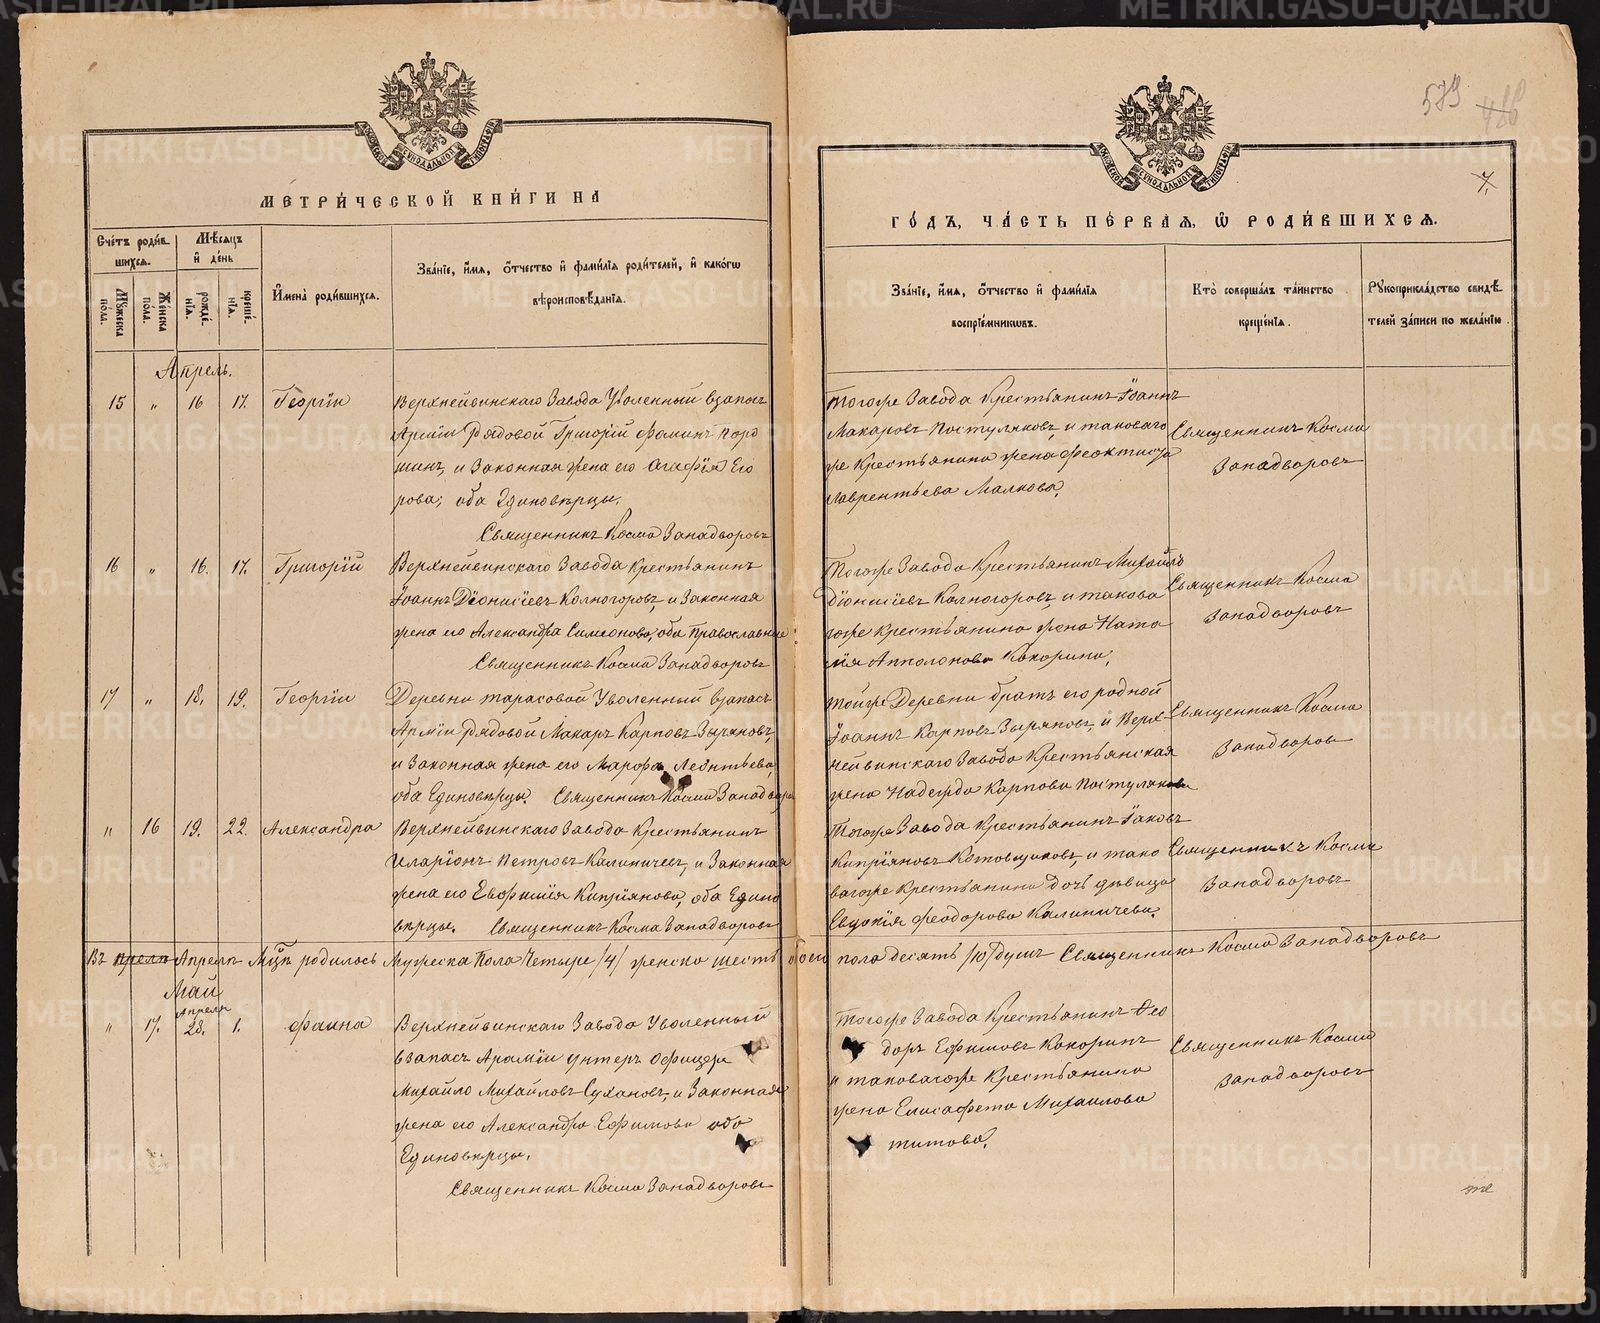 МЕТРИ́ЧЕСКОЙ КНИ́ГИ НА
Счётъ роди́вшихся.
Мѣ́сяцъ и҆ де́нь
Му́жеска пола.
Же́нска пола.
рожде́нїѧ.
креще́нїѧ.
И҆мена̀ роди́вшихся.
Зва́нїе, и҆́мѧ, ѻ҆́тчество и҆ фами́лїѧ роди́телей, и҆ како́гѡ
вѣроисповѣ́данїѧ.
Апрель.
15 " 16 17. Георгіи
Верхнейвинскаго Завода Уволенный взапасъ
Арміи рядовой Григорій Фоминъ Пор
шинъ, и Законная жена его Агафія Его
рова; оба Единовѣрцы.
Священникъ Косма Западворовъ
16 " 16. 17. Григорій
Верхнейвинскаго Завода крестьянинъ
Іоаннъ Діонисіевъ Колногоровъ, и Законная
жена его Александра Симеонова, оба Православные
Священникъ Косма Западворовъ
17 " 18. 19. Георгіи
Деревни Тарасовой Уволенный взапасъ
Арміи рядовой Макаръ Карповъ Зыряновъ,
и Законная жена его Марфа Леонтьева,
оба Единовѣрцы. Священникъ Косма Западворовъ
" 16 19. 22. Александра
Верхнейвинскаго Завода Крестьянинъ
Иларіонъ Петровъ Калиничевъ, и Законная
жена его Евфимія Кипріянова, оба Едино
вѣрцы. Священникъ Косма Западворовъ
Въ Апрелѣ Мцѣ родилось Мужеска Пола Четыре /4/ женска шесть
Май
" 17. Апреля 28. 1. Фаина
Верхнейвинскаго Завода Уволенный
взапасъ Арамїи Унтеръ Офицеръ
Михайло Михайловъ Сухановъ, и Законная
жена его Александра Ефимова оба
Единовѣрцы.
Священникъ Косма Западворовъ
579
7.
ГО́ДЪ, ЧА́СТЬ ПЕ́РВАЯ, Ѡ҆ РОДИ́ВШИХСЯ.
Зва́нїе, и҆́мѧ, ѻ҆́тчество и҆ фами́лїѧ
воспрїе́мникѡвъ.
Кто̀ соверша́лъ та́инство
креще́нїѧ.
Рꙋкоприкла́дство свидѣ́телей за́писи по жела́нїю.
Тогоже Завода Крестьянинъ Іоаннъ
Макаровъ Постуляковъ, и таковаго
же Крестьянина жена Феоктиста
Лаврентьева Малкова,
Священникъ Косма
Западворовъ
Тогоже Завода Крестьянинъ Михайло
Діонисіевъ Колногоровъ, и такова
гоже крестьянина жена Ната
лія Апполонова Кокорина,
Священникъ Косма
Западворовъ
Тойже Деревни братъ его родной
Іоаннъ Карповъ Зыряновъ, и Верх
нейвинскаго Завода Крестьянская
жена Надежда Карпова Постулякова
Священникъ Косма
Западворов
Тогоже Завода Крестьянинъ Іаковъ
Кипріяновъ Котовщиковъ, и тако
вагоже Крестьянина дочь дѣвица
Евдокія Феодорова Калиничева.
Священникъ Косма
Западворовъ
пола десять /10/ душъ Священникъ Косма Западворовъ
Тогоже Завода Крестьянинъ Фео
доръ Ефимовъ Кокоринъ
и таковагоже Крестьянина
жена Елисафета Михаилова
Титова,
Священникъ Косма
Западворовъ